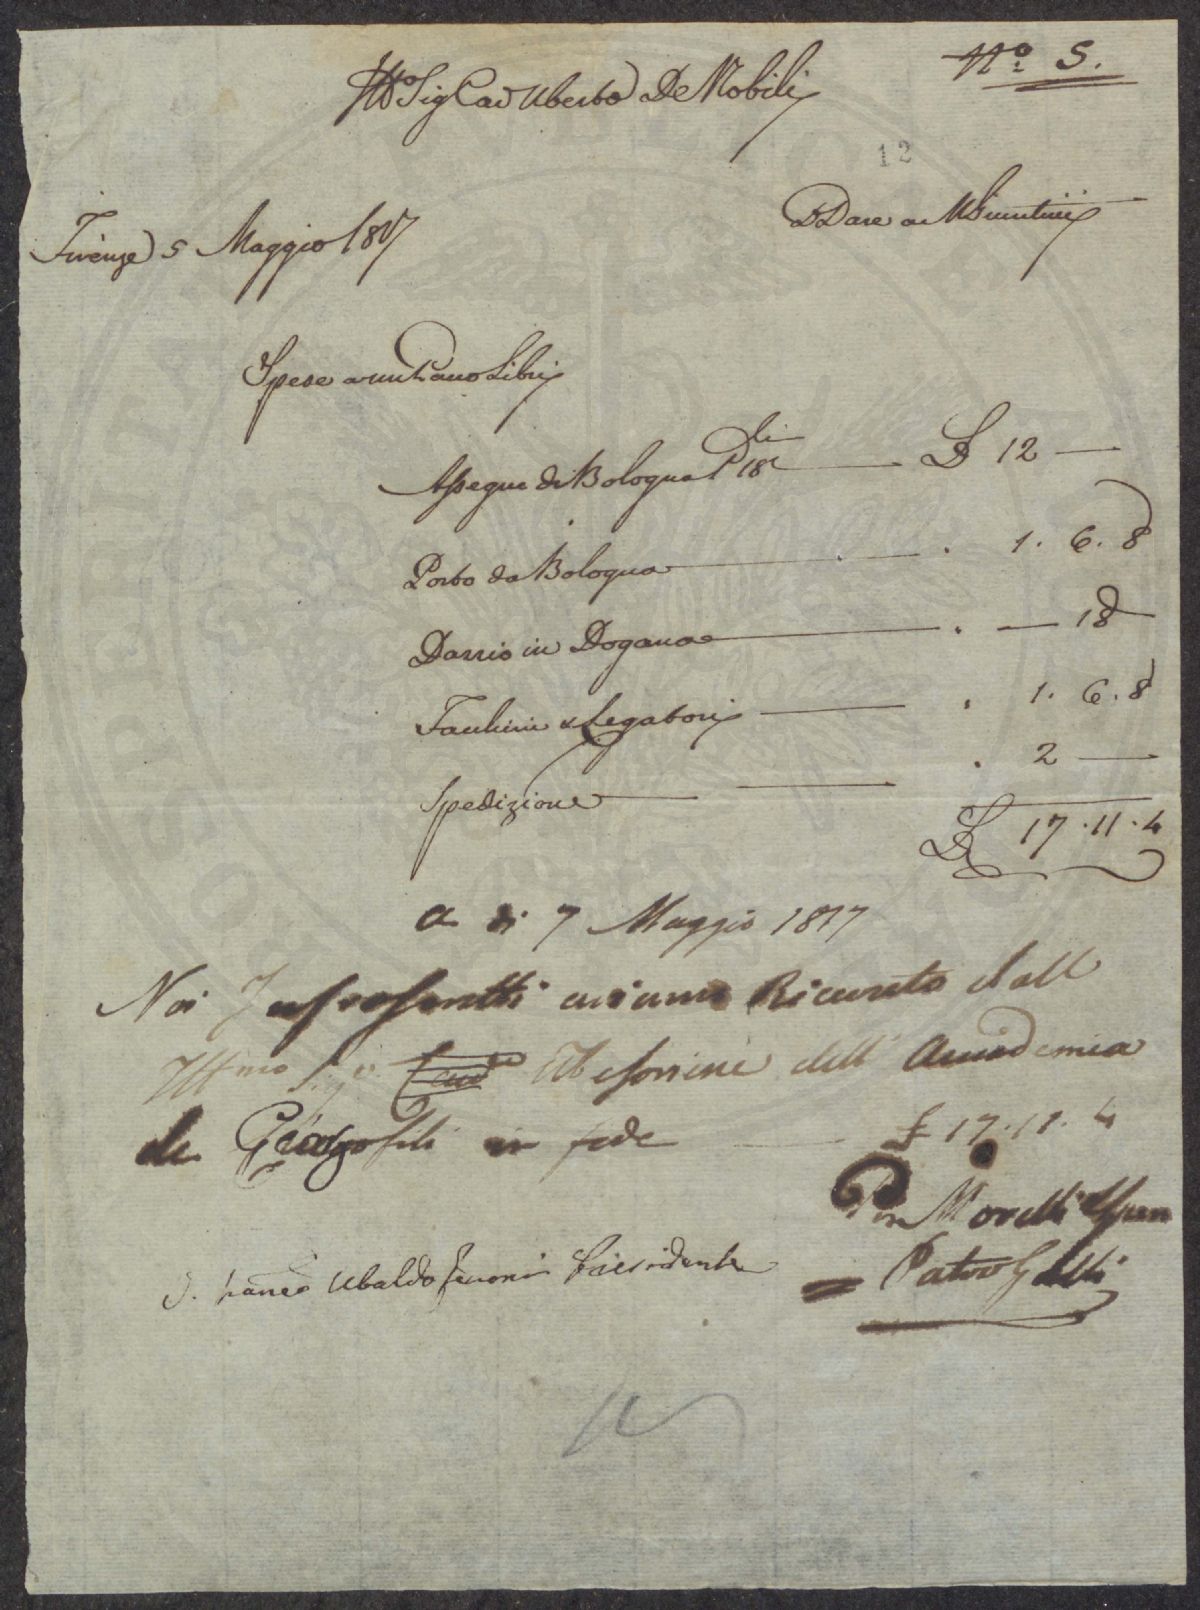 Nº 5.
Illº Sig Cav Uberto De Nobili
12
Dare a
Firenze 5 Maggio 1817
Spese a un Libri
Assegno di Bologna P 18 li £ 12 —
Porto da Bologna . 1. 6. 8
Dazzio in Dogana . — 18 —
Facchini e Legatori . 1. 6. 8
Spedizione . 2 —
£ 17. 11. 4
a di 7 Maggio 1817
Noi Infrascritti aviamo Ricevuto dall
Illmo Sigr dell' Accademia
de Georgofili in fede £ 17. 11. 4
Per Moretti
Ubaldo Feroni Presidente
Galli